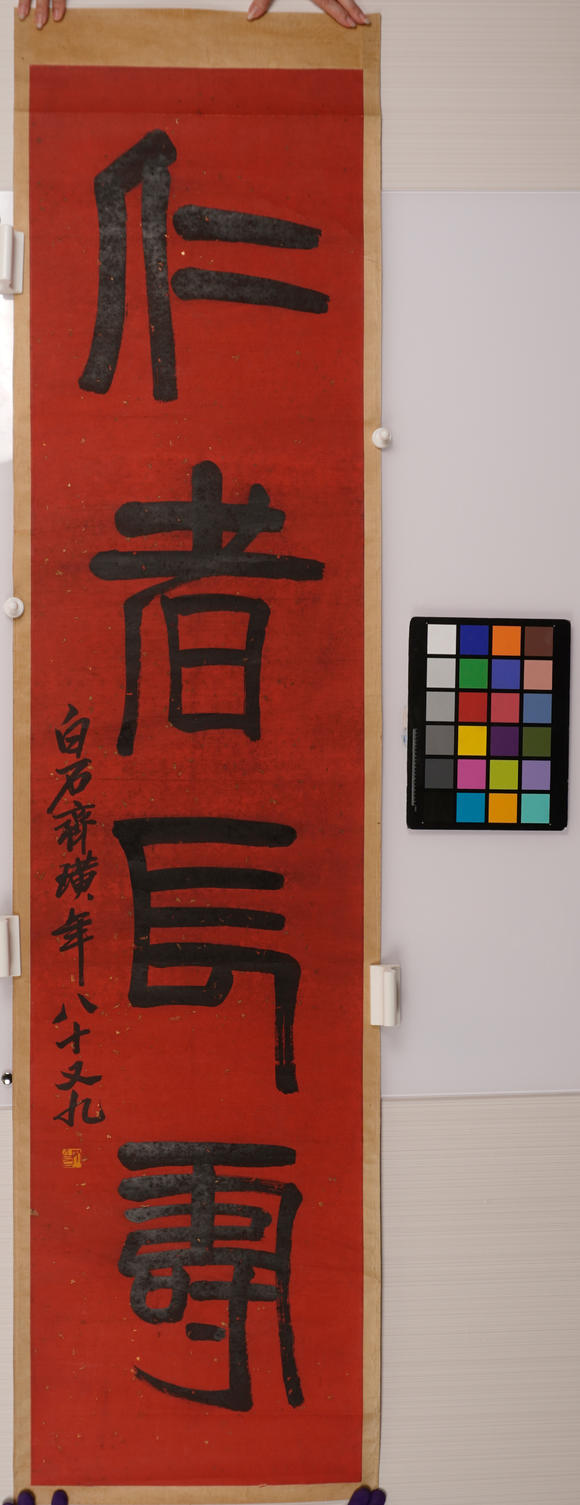 仁者長壽
白石齊璜年八十又九